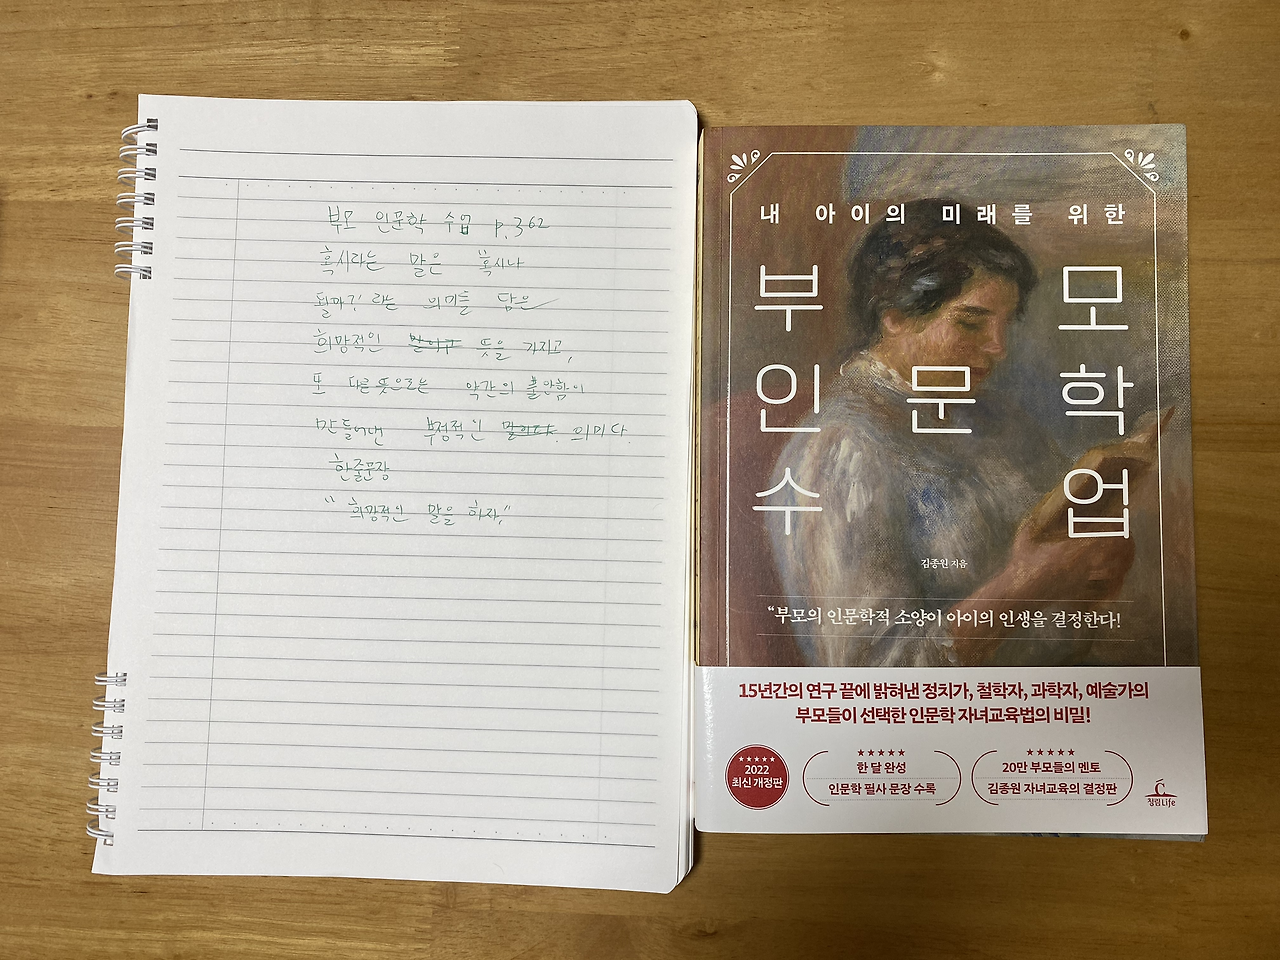 부모 인문학 수업 p.362
혹시라는 말은 혹시나
될까? 라는 의미를 담은
희망적인 뜻을 가지고,
또 다른 뜻으로는 약간의 불안함이
만들어낸 부정적인 의미다.
한줄문장
"희망적인 말을 하자."
내 아이의 미래를 위한
부모
인문학
수업
김종원 지음
"부모의 인문학적 소양이 아이의 인생을 결정한다!
15년간의 연구 끝에 밝혀낸 정치가, 철학자, 과학자, 예술가의
부모들이 선택한 인문학 자녀교육법의 비밀!
★★★★★
2022
최신 개정판
★★★★★
한 달 완성
인문학 필사 문장 수록
★★★★★
20만 부모들의 멘토
김종원 자녀교육의 결정판
청림Life